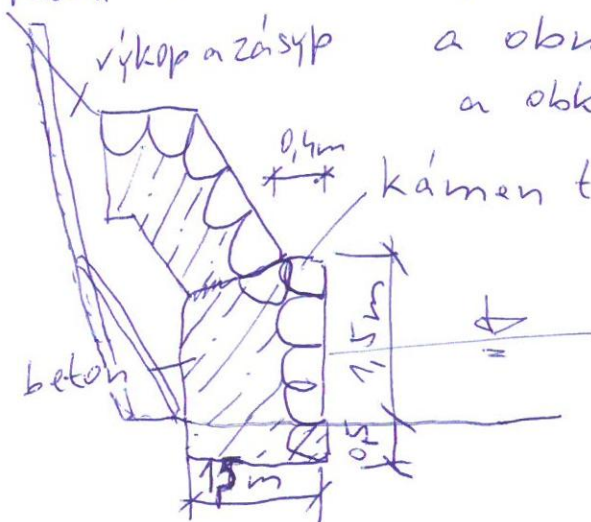 výkop a zásyp
a obn
a obk
0,4m
kámen t
1,5 m
beton
0,5
1,5 m